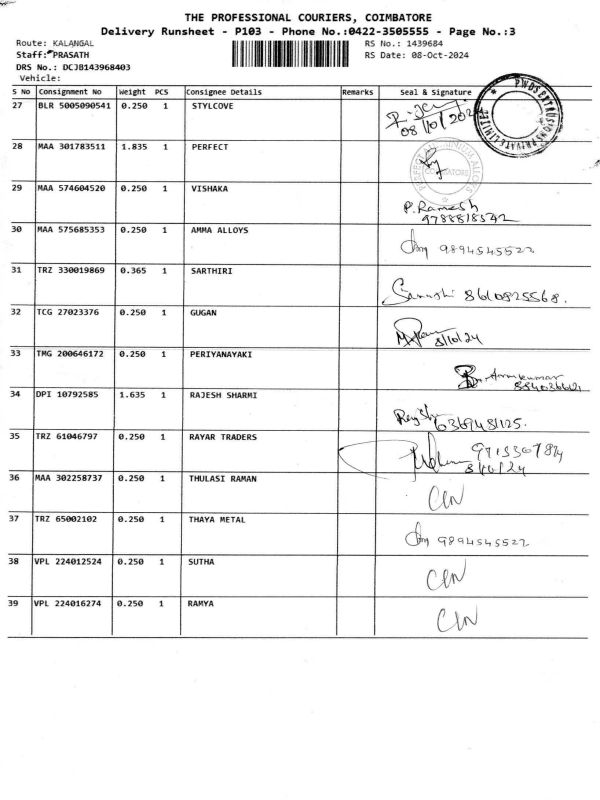 THE PROFESSIONAL COURIERS, COIMBATORE
Delivery Runsheet - P103 - Phone No.:0422-3505555 - Page No.:3
Route: KALANGAL RS No.: 1439684
Staff: PRASATH RS Date: 08-Oct-2024
DRS No.: DCJB143968403
Vehicle:
S No Consignment No Weight PCS Consignee Details Remarks Seal & Signature
27 BLR 5005090541 0.250 1 STYLCOVE
08/10/202
28 MAA 301783511 1.835 1 PERFECT
29 MAA 574604520 0.250 1 VISHAKA
P. Ramesh
9788818542
30 MAA 575685353 0.250 1 AMMA ALLOYS 9894545522
31 TRZ 330019869 0.365 1 SARTHIRI
8610825568.
32 TCG 27023376 0.250 1 GUGAN
8/10/24
33 TMG 200646172 0.250 1 PERIYANAYAKI
34 DPI 10792585 1.635 1 RAJESH SHARMI
6369481125.
35 TRZ 61046797 0.250 1 RAYAR TRADERS
8/10/24
36 MAA 302258737 0.250 1 THULASI RAMAN
37 TRZ 65002102 0.250 1 THAYA METAL 9894545522
38 VPL 224012524 0.250 1 SUTHA
39 VPL 224016274 0.250 1 RAMYA